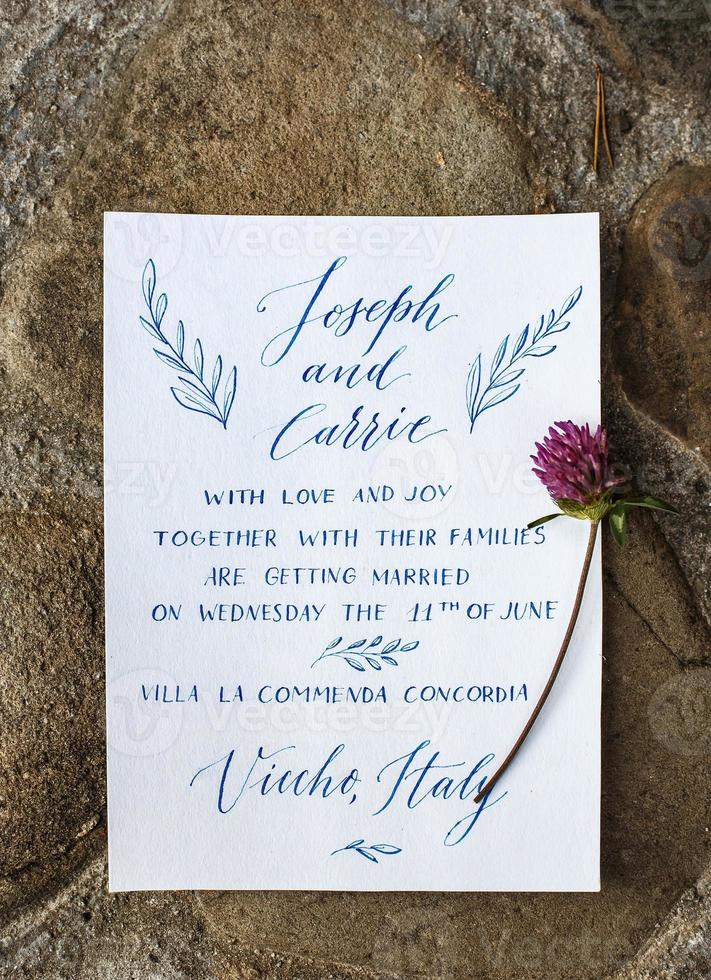 Joseph
and
Carrie
WITH LOVE AND JOY
TOGETHER WITH THEIR FAMILIES
ARE GETTING MARRIED
ON WEDNESDAY THE 11TH OF JUNE
VILLA LA COMMENDA CONCORDIA
Viccho, Italy
Vecteezy